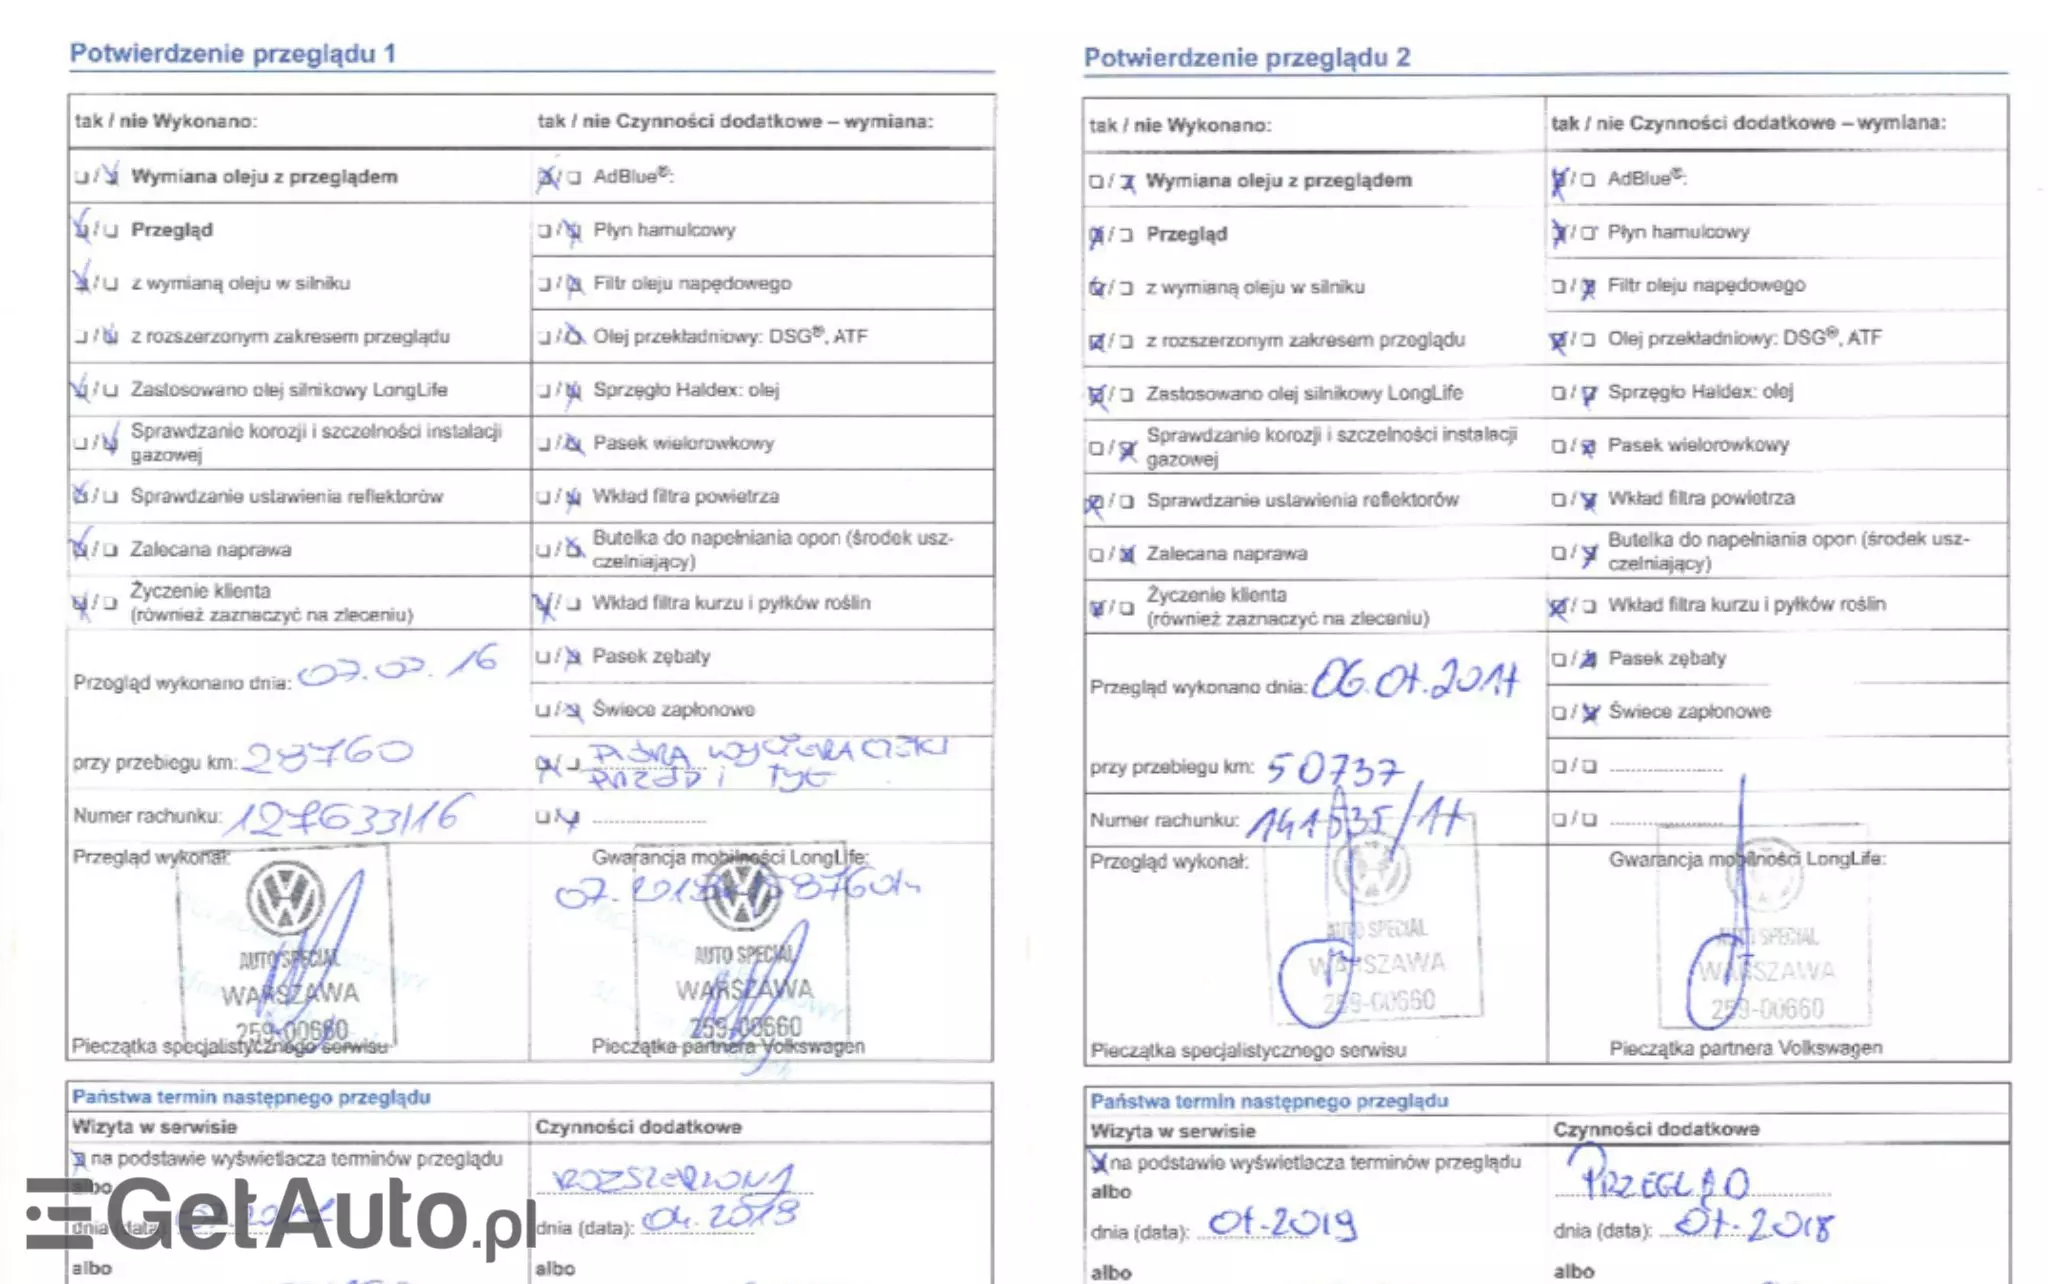 Potwierdzenie przeglądu 1
tak / nie Wykonano:
tak / nie Czynności dodatkowe – wymiana:
Wymiana oleju z przeglądem
AdBlue®:
Przegląd
Płyn hamulcowy
z wymianą oleju w silniku
Filtr oleju napędowego
z rozszerzonym zakresem przeglądu
Olej przekładniowy: DSG®, ATF
Zastosowano olej silnikowy LongLife
Sprzęgło Haldex: olej
Sprawdzanie korozji i szczelności instalacji
gazowej
Pasek wielorowkowy
Sprawdzanie ustawienia reflektorów
Wkład filtra powietrza
Zalecana naprawa
Butelka do napełniania opon (środek usz-
czelniający)
Życzenie klienta
(również zaznaczyć na zleceniu)
Wkład filtra kurzu i pyłków roślin
Przegląd wykonano dnia: 07.07.16
Pasek zębaty
Świece zapłonowe
przy przebiegu km: 28760
PIÓRA WYCIERACZKI
PRZÓD i TYŁ
Numer rachunku: 127633/16
Przegląd wykonał:
Gwarancja mobilności LongLife:
AUTO SPECIAL
WARSZAWA
259-00660
AUTO SPECIAL
WARSZAWA
259-00660
Pieczątka specjalistycznego serwisu
Pieczątka partnera Volkswagen
Państwa termin następnego przeglądu
Wizyta w serwisie
Czynności dodatkowe
na podstawie wyświetlacza terminów przeglądu
albo
dnia (data):
dnia (data): 04.2018
albo
albo
Potwierdzenie przeglądu 2
tak / nie Wykonano:
tak / nie Czynności dodatkowe – wymiana:
Wymiana oleju z przeglądem
AdBlue®:
Przegląd
Płyn hamulcowy
z wymianą oleju w silniku
Filtr oleju napędowego
z rozszerzonym zakresem przeglądu
Olej przekładniowy: DSG®, ATF
Zastosowano olej silnikowy LongLife
Sprzęgło Haldex: olej
Sprawdzanie korozji i szczelności instalacji
gazowej
Pasek wielorowkowy
Sprawdzanie ustawienia reflektorów
Wkład filtra powietrza
Zalecana naprawa
Butelka do napełniania opon (środek usz-
czelniający)
Życzenie klienta
(również zaznaczyć na zleceniu)
Wkład filtra kurzu i pyłków roślin
Przegląd wykonano dnia: 06.07.2017
Pasek zębaty
Świece zapłonowe
przy przebiegu km: 50737
Numer rachunku:
Przegląd wykonał:
Gwarancja mobilności LongLife:
AUTO SPECIAL
WARSZAWA
259-00660
AUTO SPECIAL
WARSZAWA
259-00660
Pieczątka specjalistycznego serwisu
Pieczątka partnera Volkswagen
Państwa termin następnego przeglądu
Wizyta w serwisie
Czynności dodatkowe
na podstawie wyświetlacza terminów przeglądu
PRZEGLĄD
albo
dnia (data): 07-2019
dnia (data): 07-2018
albo
albo
GetAuto.pl